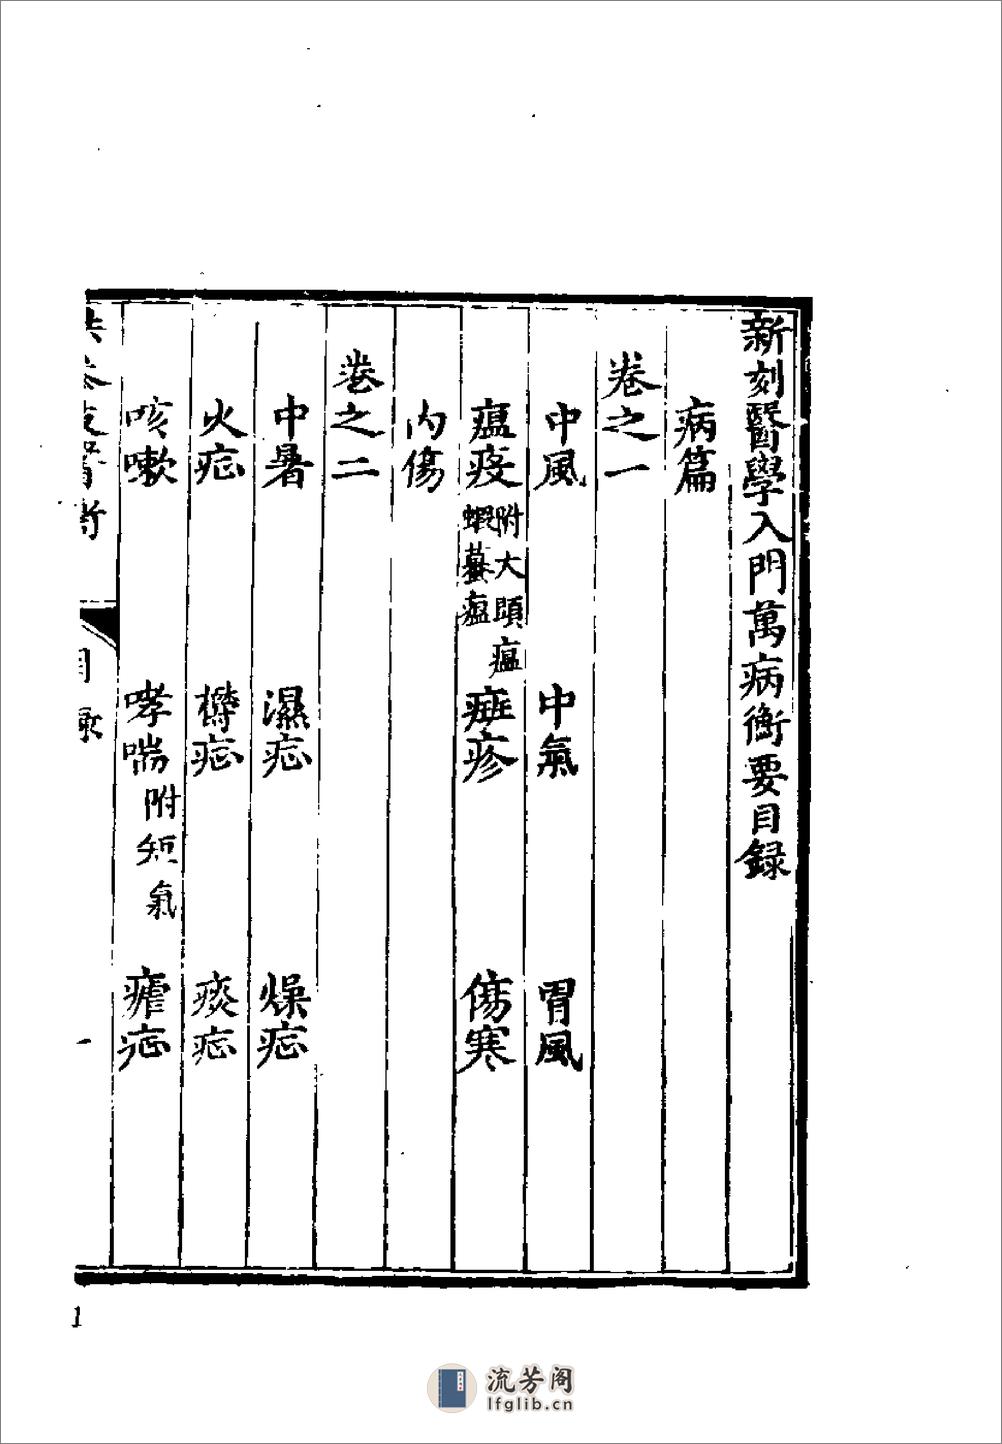 新刻醫學入門萬病衡要目録
病篇
卷之一
中風 中氣 冒風
瘟疫 附大頭瘟 蝦蟇瘟 痓疹 傷寒
內傷
卷之二
中暑 濕症 燥症
火症 欝症 痰症
咳嗽 哮喘 附短氣 瘧症
目録 一
1
流芳阁
lfglib.cn